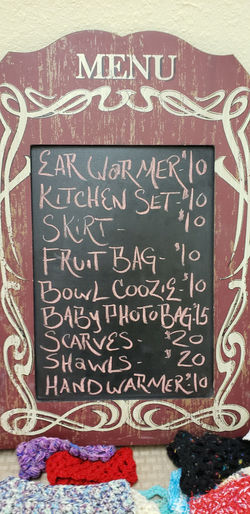 MENU
EAR WARMER-$10
KITCHEN SET-$10
SKIRT-$10
FRUIT BAG-$10
BOWL COOZIE-$10
BABY PHOTO BAG-$15
SCARVES-$20
SHAWLS-$20
HANDWARMER-$10